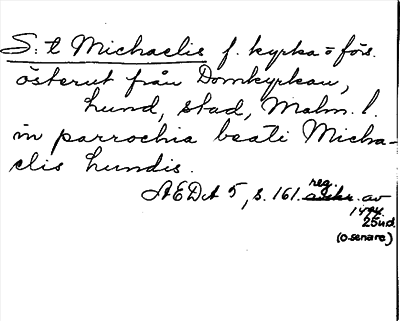 S:t Michaelis f. kyrka o förs.
österut från Domkyrkan,
Lund, stad, Malm. l.
in parrochia beati Micha-
elis Lundis.
AEDA 5, s. 161. reg. av
1494.
25ind.
(o. senare)